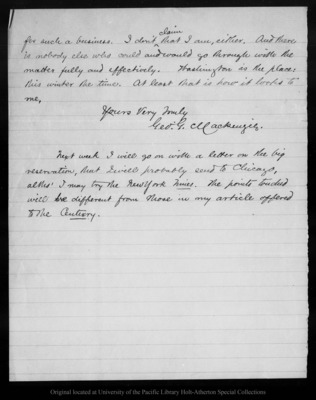 claim
for such a business. I don't ^ that I am, either. And there
is nobody else who could and would go through with the
matter fully and effectively. Washington is the place:
this winter the time. At least that is how it looks to
me,
Yours Very Truly
Geo. G. Mackenzie.
Next week I will go on with a letter on the big
reservation, that I will probably send to Chicago,
altho' I may try the New York Times. The points touched
will be different from those in my article offered
to the Century.
Original located at University of the Pacific Library Holt-Atherton Special Collections